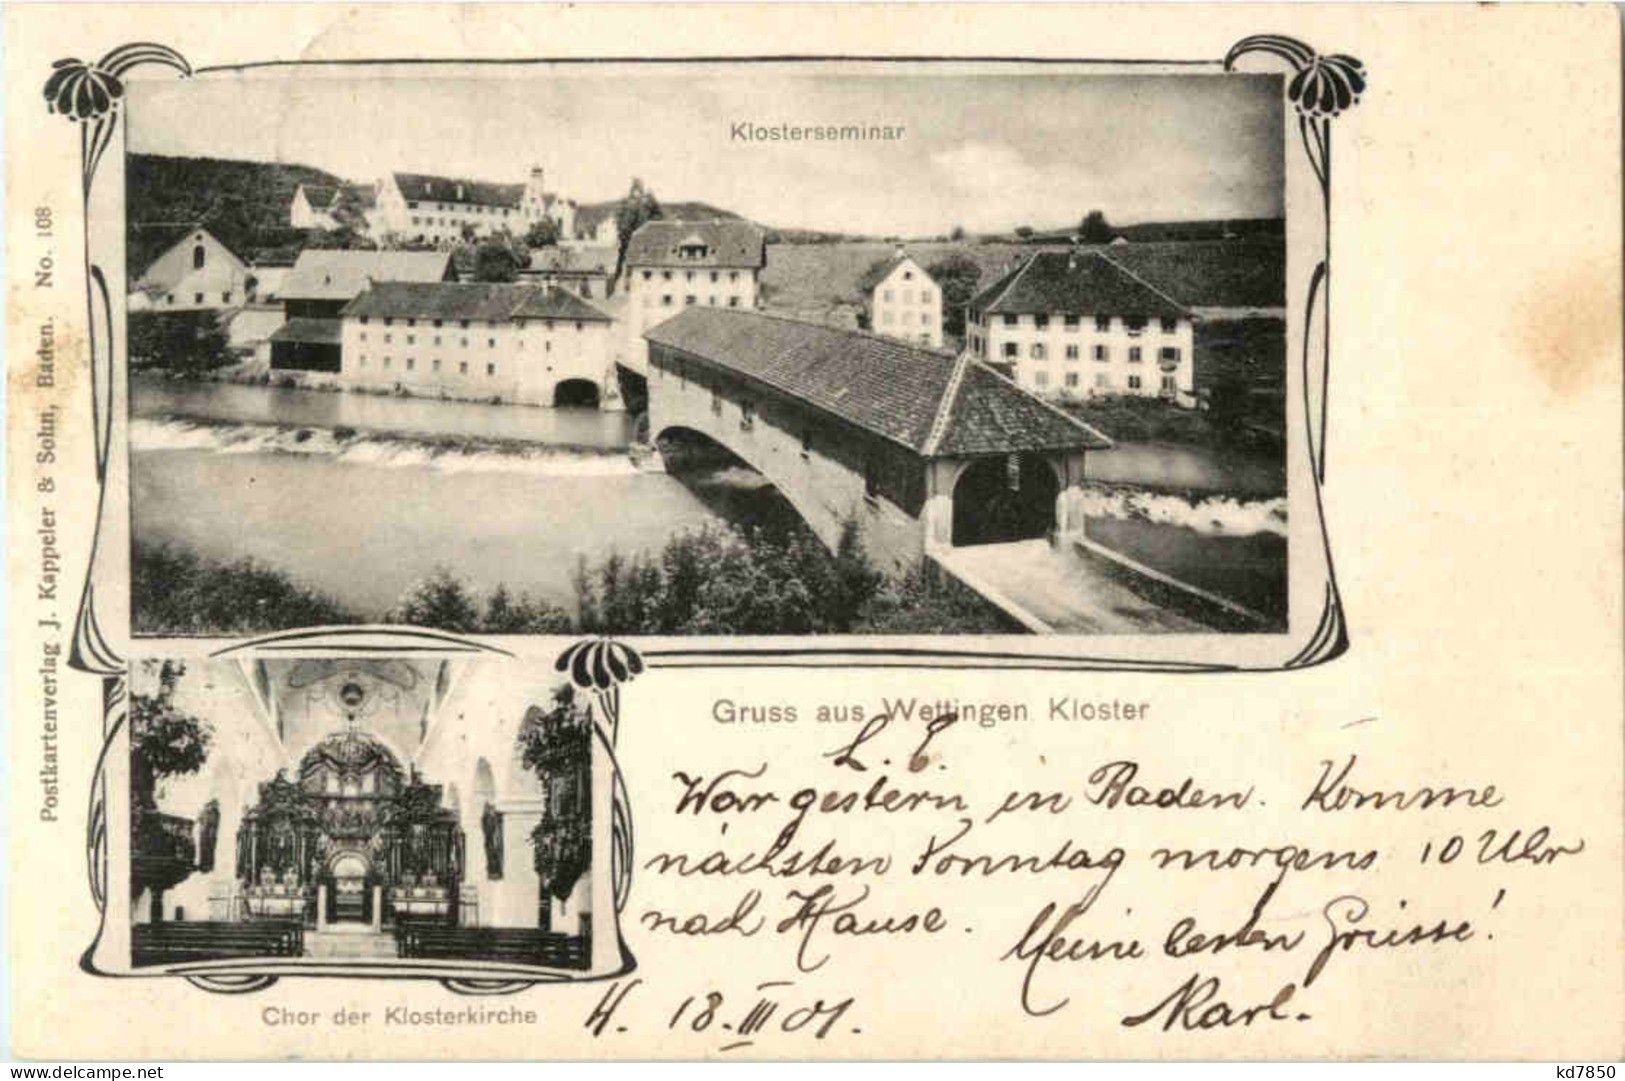 Klosterseminar
Postkartenverlag J. Kappeler & Sohn, Baden. No. 108
Gruss aus Wettingen Kloster
L. E.
War gestern in Baden. Komme
nächsten Sonntag morgens 10 Uhr
nach Hause. Meine besten Grüsse!
Karl.
W. 18. III 01.
Chor der Klosterkirche
delcampe.net
kd7850